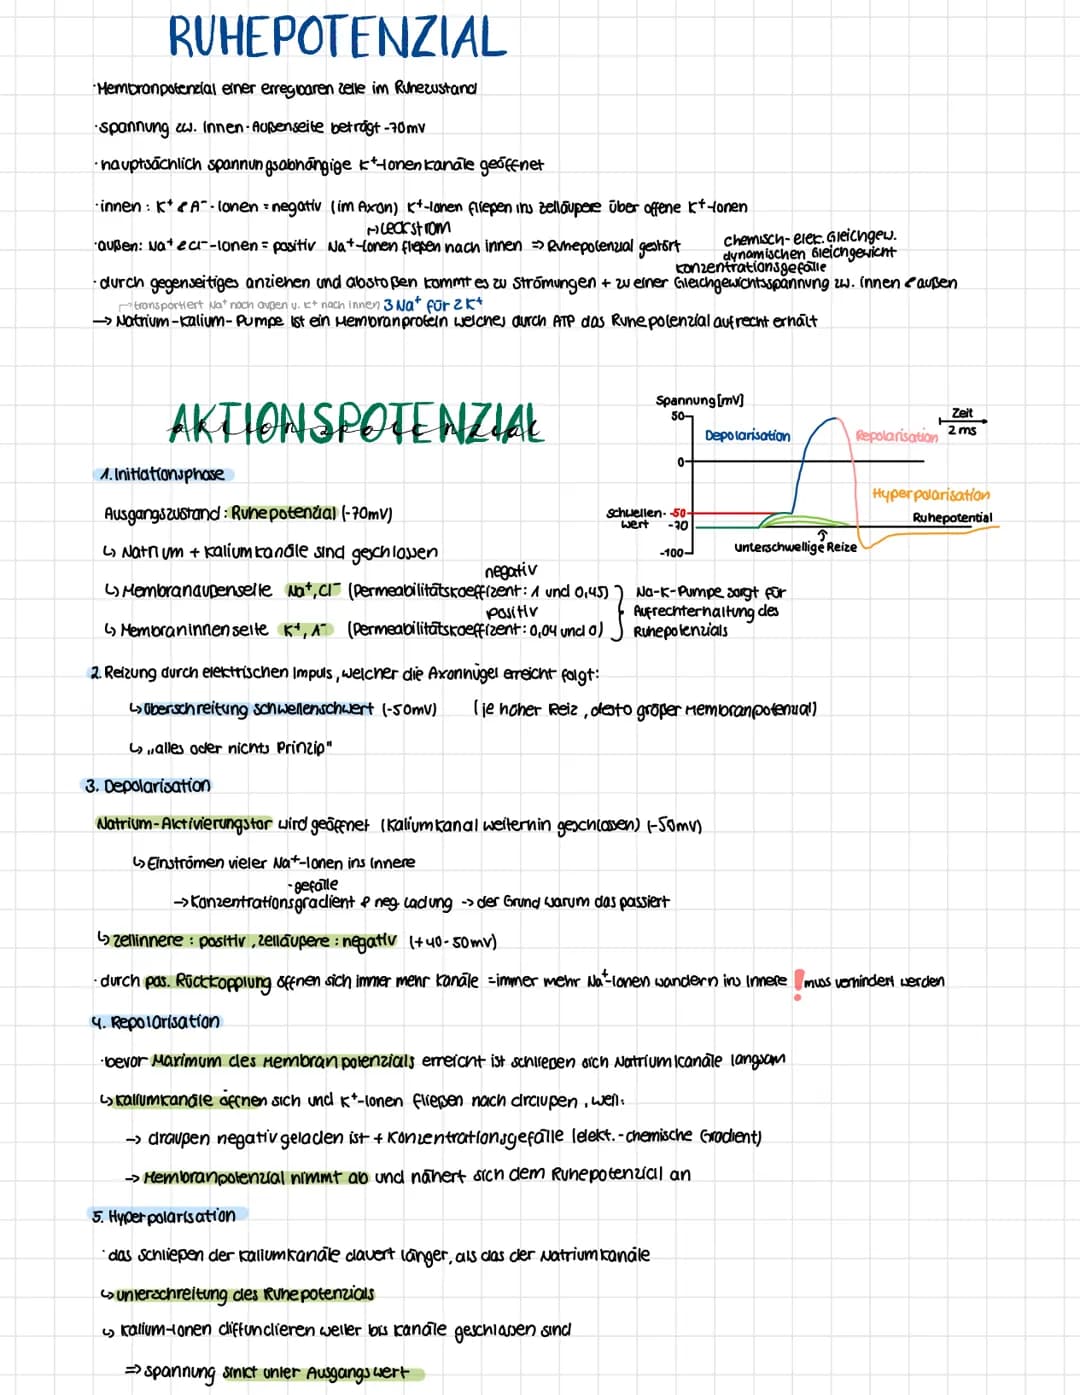 RUHEPOTENZIAL
·Membranpotenzial einer erregbaren Zelle im Ruhezustand
·spannung zw. Innen-Außenseite beträgt -70mv
·hauptsächlich spannungsabhängige K+-Ionenkanäle geöffnet
·innen: K+ & A- -Ionen = negativ (im Axon) K+-Ionen fließen ins zelläußere über offene K+-Ionen
↦Leckstrom
·außen: Na+ & Cl- -Ionen = positiv Na+-Ionen fließen nach innen ⇒ Ruhepotenzial gestört
chemisch-elek. Gleichgew.
dynamischen Gleichgewicht
konzentrationsgefälle
·durch gegenseitiges anziehen und abstoßen kommt es zu Strömungen + zu einer Gleichgewichtsspannung zw. innen & außen
transportiert Na+ nach außen u. K+ nach innen 3 Na+ für 2 K+
→ Natrium-Kalium-Pumpe ist ein Membranprotein welches durch ATP das Ruhepotenzial aufrecht erhält
AKTIONSPOTENZIAL
aktionspotenzial
Spannung[mV]
50
0
Schwellen- -50
wert -70
-100
Depolarisation
Repolarisation
Zeit
2 ms
Hyperpolarisation
Ruhepotential
unterschwellige Reize
1. Initiationsphase
Ausgangszustand: Ruhepotenzial (-70mV)
↳ Natrium + Kaliumkanäle sind geschlossen
negativ
↳ Membranaußenseite Na+, Cl- (Permeabilitätskoeffizent: 1 und 0,45)
positiv
↳ Membraninnenseite K+, A- (Permeabilitätskoeffizent: 0,04 und 0)
Na-K-Pumpe sorgt für
Aufrechterhaltung des
Ruhepotenzials
2. Reizung durch elektrischen Impuls, welcher die Axonhügel erreicht folgt:
↳ überschreitung schwellenschwert (-50mV) (je höher Reiz, desto größer Membranpotenzial)
↳ „alles oder nichts Prinzip"
3. Depolarisation
Natrium-Aktivierungstor wird geöffnet (Kaliumkanal weiterhin geschlossen) (-50mv)
↳ Einströmen vieler Na+-Ionen ins Innere
-gefälle
→ Konzentrationsgradient & neg Ladung -> der Grund warum das passiert
↳ zellinnere: positiv, zelläußere: negativ (+40-50mv)
·durch pos. Rückkopplung öffnen sich immer mehr Kanäle = immer mehr Na+-Ionen wandern ins Innere ! muss verhindert werden
4. Repolarisation
·bevor Maximum des Membranpotenzials erreicht ist schließen sich Natriumkanäle langsam
↳ Kaliumkanäle öffnen sich und K+-Ionen fließen nach draußen, weil:
-> draußen negativ geladen ist + Konzentrationsgefälle (elekt.-chemische Gradient)
-> Membranpotenzial nimmt ab und nähert sich dem Ruhepotenzial an
5. Hyperpolarisation
·das schließen der Kaliumkanäle dauert länger, als das der Natriumkanäle
↳ unterschreitung des Ruhepotenzials
↳ Kalium-Ionen diffundieren weiter bis Kanäle geschlossen sind
⇒ spannung sinkt unter Ausgangswert